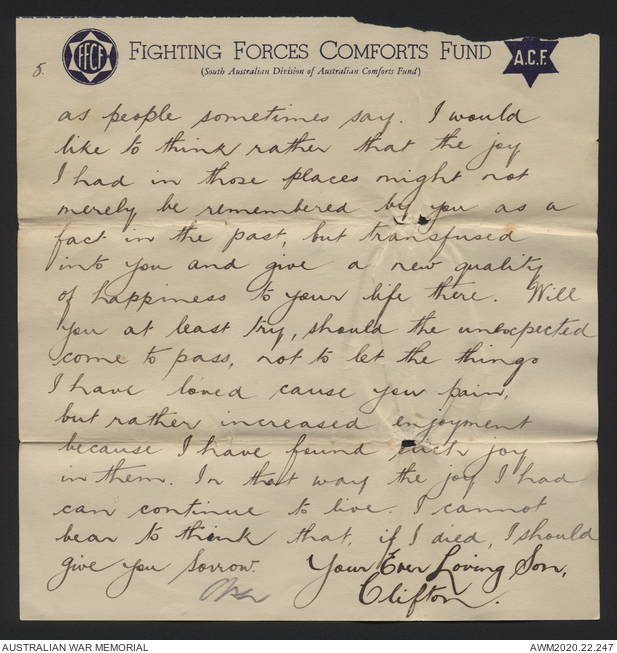 8.
FFCF
FIGHTING FORCES COMFORTS FUND
A.C.F.
(South Australian Division of Australian Comforts Fund)
as people sometimes say. I would
like to think rather that the joy
I had in those places might not
merely be remembered by you as a
fact in the past, but transfused
into you and give a new quality
of happiness to your life there. Will
you at least try, should the unexpected
come to pass, not to let the things
I have loved cause you pain,
but rather increased enjoyment
because I have found such joy
in them. In that way the joy I had
can continue to live. I cannot
bear to think that, if I died, I should
give you sorrow. Your Ever Loving Son,
Clifton.
AUSTRALIAN WAR MEMORIAL
AWM2020.22.247